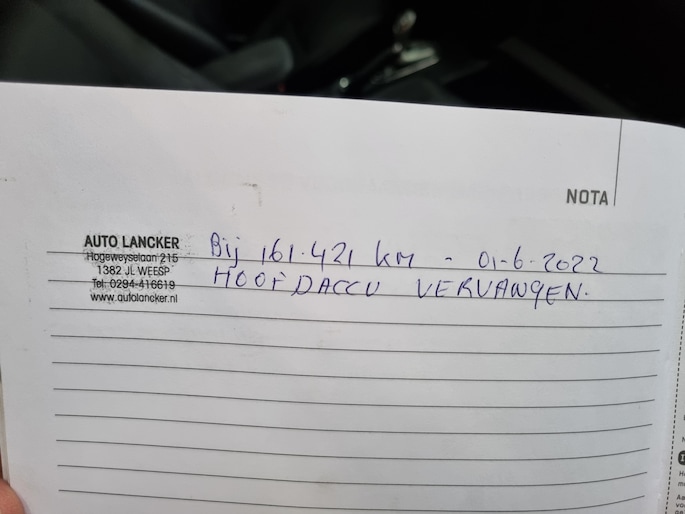 NOTA
AUTO LANCKER
Hogeweyselaan 215
1382 JL WEESP
Tel. 0294-416619
www.autolancker.nl
Bij 161.421 km - 01-6-2022
HOOFDACCU VERVANGEN.